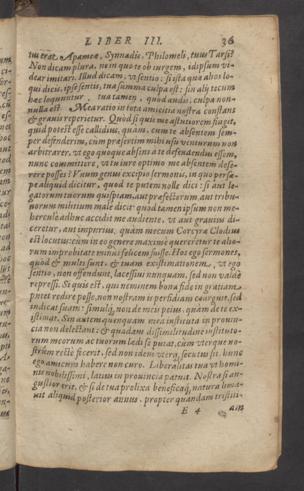 LIBER III. 36
iui erat. Apameæ, Synnadis, Philomeli, tuus Tarsi?
Non dicam plura. ne in quo te obiurgem, id ipsum vi-
dear imitari. Illud dicam, vt sentio: si ista quæ alios lo-
qui dicis, ipse sentis, tua summa culpa est: sin alij tecum
hæc loquuntur, tua tamen, quod audis, culpa non
nulla est. Mea ratio in tota amicitia nostra constans
& grauis reperietur. Quòd si quis me astutiorem fingit,
quid potest esse callidius, quàm, cum te absentem sem-
per defenderim, cum præsertim mihi vsu venturum non
arbitrarer, vt ego quoque absens à te defendendus essem,
nunc committere, vt tu iure optimo me absentem dese-
rere posses? Vnum genus excipio sermonis, in quo persæ-
pe aliquid dicitur, quod te putem nolle dici: si aut le-
gatorum tuorum quispiam, aut præfectorum, aut tribu-
norum militum malè dicit: quod tamen ipsum non me-
herculè adhuc accidit me audiente, vt aut grauius di-
ceretur, aut in plures, quàm mecum Corcyræ Clodius
est locutus: cum in eo genere maximè quereretur te alio-
rum improbitate minus felicem fuisse. Hos ego sermones,
quòd & multi sunt, & tuam existimationem, vt ego
sentio, non offendunt, lacessiui nunquam, sed non valdè
repressi. Si quis est, qui neminem bona fide in gratiam
putet redire posse, non nostram is perfidiam coarguit, sed
indicat suam: simulq́; non de me is peius, quàm de te ex-
istimat. Sin autem quenquam mea instituta in prouin-
cia non delectant: & quadam dissimilitudine instituto-
rum meorum ac tuorum lædi se putat, cum vterque no-
strûm rectè fecerit, sed non idem vterq; secutus sit, hunc
ego amicum habere non curo. Liberalitas tua vt homi-
nis nobilissimi, latius in prouincia patuit. Nostra si an-
gustior erit, & si de tua prolixa beneficaq́; natura lima-
uit aliquid posterior annus, propter quandam tristiti-
E 4